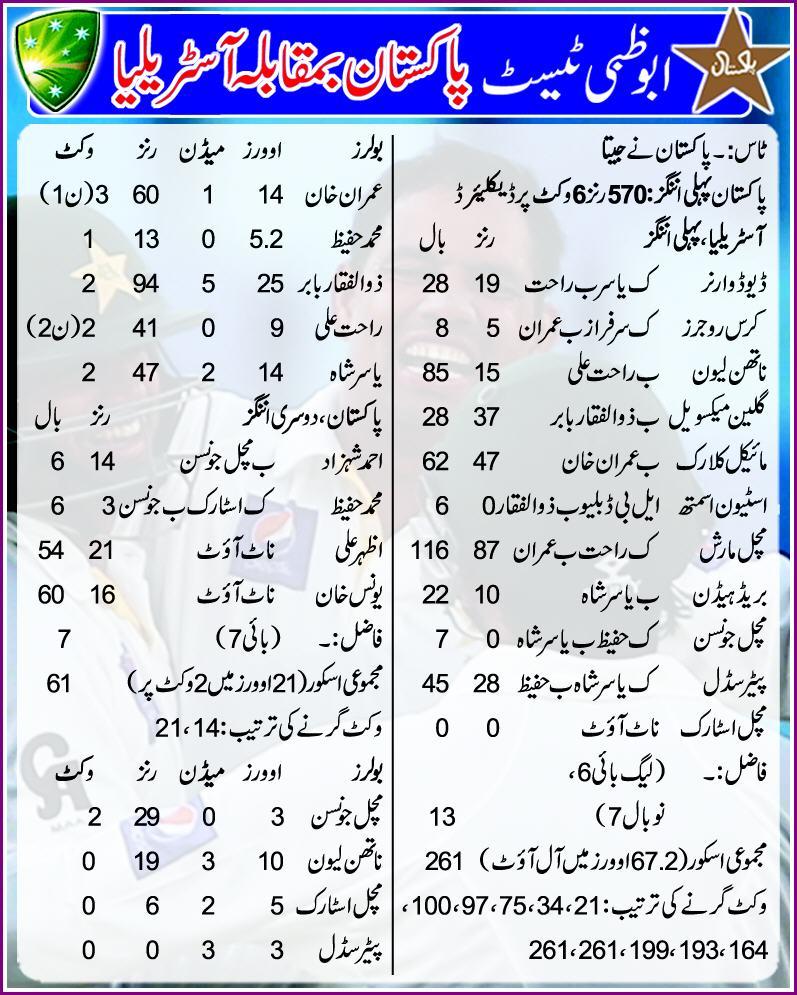 ابوظبی ٹیسٹ پاکستان بمقابلہ آسٹریلیا
پاکستان
ٹاس:۔ پاکستان نے جیتا
پاکستان پہلی اننگز: 570 رنز 6 وکٹ پر ڈیکلیئرڈ
آسٹریلیا، پہلی اننگز رنز بال
ڈیوڈ وارنر ک یاسر ب راحت 19 28
کرس روجرز ک سرفراز ب عمران 5 8
ناتھن لیون ب راحت علی 15 85
گلین میکسویل ب ذوالفقار بابر 37 28
مائیکل کلارک ب عمران خان 47 62
اسٹیون اسمتھ ایل بی ڈبلیو ب ذوالفقار 0 6
مچل مارش ک راحت ب عمران 87 116
بریڈ ہیڈن ب یاسر شاہ 10 22
مچل جونسن ک حفیظ ب یاسر شاہ 0 7
پیٹر سڈل ک یاسر شاہ ب حفیظ 28 45
مچل اسٹارک ناٹ آؤٹ 0 0
فاضل:۔ (لیگ بائی 6،
نو بال 7) 13
مجموعی اسکور (67.2 اوورز میں آل آؤٹ) 261
وکٹ گرنے کی ترتیب: 21، 34، 75، 97، 100،
164، 193، 199، 261، 261
بولرز اوورز میڈن رنز وکٹ
عمران خان 14 1 60 3 (ن1)
محمد حفیظ 5.2 0 13 1
ذوالفقار بابر 25 5 94 2
راحت علی 9 0 41 2 (ن2)
یاسر شاہ 14 2 47 2
پاکستان، دوسری اننگز رنز بال
احمد شہزاد ب مچل جونسن 14 6
محمد حفیظ ک اسٹارک ب جونسن 3 6
اظہر علی ناٹ آؤٹ 21 54
یونس خان ناٹ آؤٹ 16 60
فاضل:۔ (بائی 7) 7
مجموعی اسکور (21 اوورز میں 2 وکٹ پر) 61
وکٹ گرنے کی ترتیب: 14، 21
بولرز اوورز میڈن رنز وکٹ
مچل جونسن 3 0 29 2
ناتھن لیون 10 3 19 0
مچل اسٹارک 5 2 6 0
پیٹر سڈل 3 3 0 0